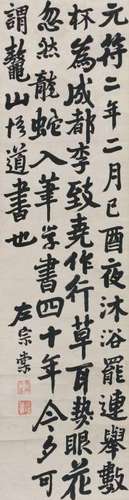 元符二年二月己酉夜沐浴罷連舉數
杯為成都李致堯作行草耳熱眼花
忽然龍蛇入筆學書四十年今夕可
謂鰲山悟道書也
左宗棠